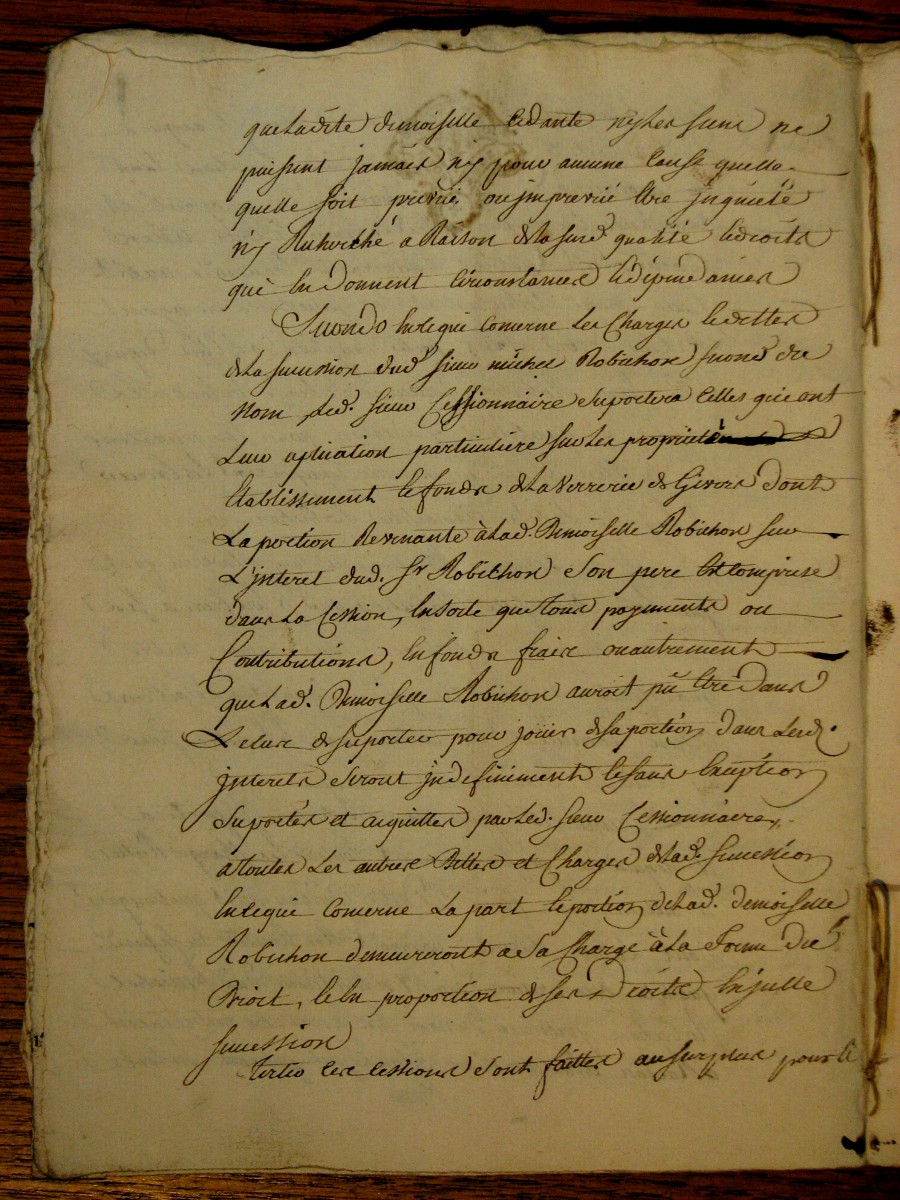 que ladite demoiselle cedante ny les siens ne
puissent jamais ny pour aucune cause quelle
quelle soit prevüe ou imprevüe etre inquieté
ny Recherché a Raison de lasusd. qualité et droits
qui en donnent circonstances et dépendances
Secondo en ce qui concerne Les Charges et dettes
de La succession dud. sieur michel Robichon second du
nom, Led. sieur Cessionnaire suportera celles qui ont
Leur aplication particuliere sur Les proprietés
Etablissement et fonds de La Verrerie de Givors dont
La portion Revenante à Lad. Demoiselle Robichon sur
L'interet dud. Sr Robichon Son pere est comprise
dans La Cession, en sorte que tous payments ou
Contributions, en fonds fraix ou autrement
que Lad. Demoiselle Robichon auroit pû etre dans
Le cas de suporter pour joüir de sa portion dans Lesd.
interets seront indefiniment et sans exception
suportés et aiquittés par Led. sieur Cessionnaire,
a toutes Les autres Dettes et Charges de Lad. succession
en ce qui concerne La part et portion de Lad. demoiselle
Robichon demeureront a Sa Charge à La Forme du
Droit, et en proportion de ses droits en icelle
succession
Tertio ces cessions sont faittes au surplus pour le